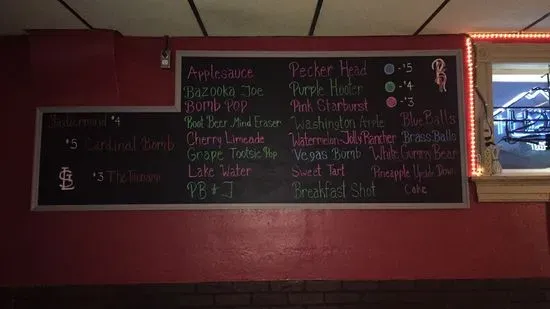 $4
$5 Cardinal Bomb
STL
$3 The Tsunami
Applesauce
Bazooka Joe
Bomb Pop
Root Beer Mind Eraser
Cherry Limeade
Grape Tootsie Pop
Lake Water
PB & J
Pecker Head
Purple Hooter
Pink Starburst
Washington Apple
Watermelon Jolly Rancher
Vegas Bomb
Sweet Tart
Breakfast Shot
- $5
- $4
- $3
Blue Balls
Brass Balls
White Gummy Bear
Pineapple Upside Down
Cake